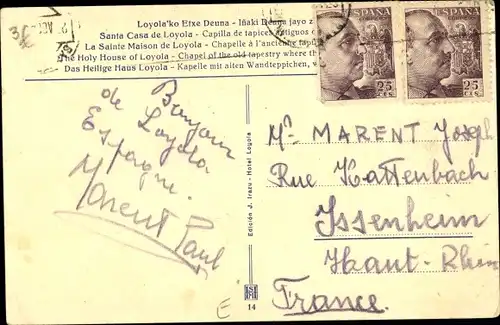 Loyola'ko Etxe Deuna - Iñaki Deuna jayo z
Santa Casa de Loyola - Capilla de tapices antiguos
La Sainte Maison de Loyola - Chapelle à l'ancienne
The Holy House of Loyola - Chapel of the old tapestry where th
Das Heilige Haus Loyola - Kapelle mit alten Wandteppichen, w
ESPAÑA
25
CTS
ESPAÑA
25
CTS
Bonjour
de Loyola
Espagne.
Marent Paul
Edición J. Irazu - Hotel Loyola
14
E
Mr MARENT Joseph
Rue Hattenbach
Issenheim
Haut-Rhin
France.